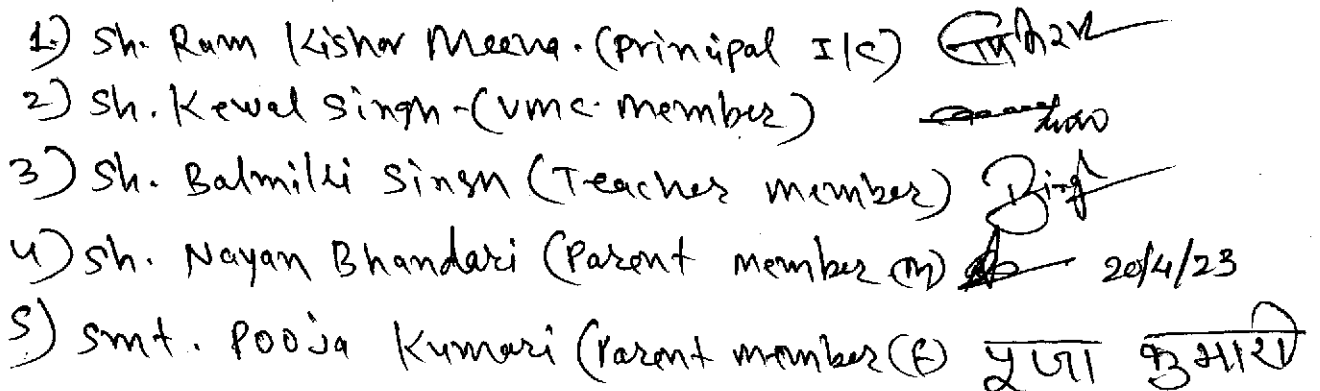 1) Sh. Ram Kishor Meena. (Principal I/C)
2) Sh. Kewal Singh - (VMC. Member)
3) Sh. Balmiki Singh (Teacher member) Singh
4) Sh. Nayan Bhandari (Parent member (M) 20/4/23
5) Smt. Pooja Kumari (Parent member (F) पूजा कुमारी